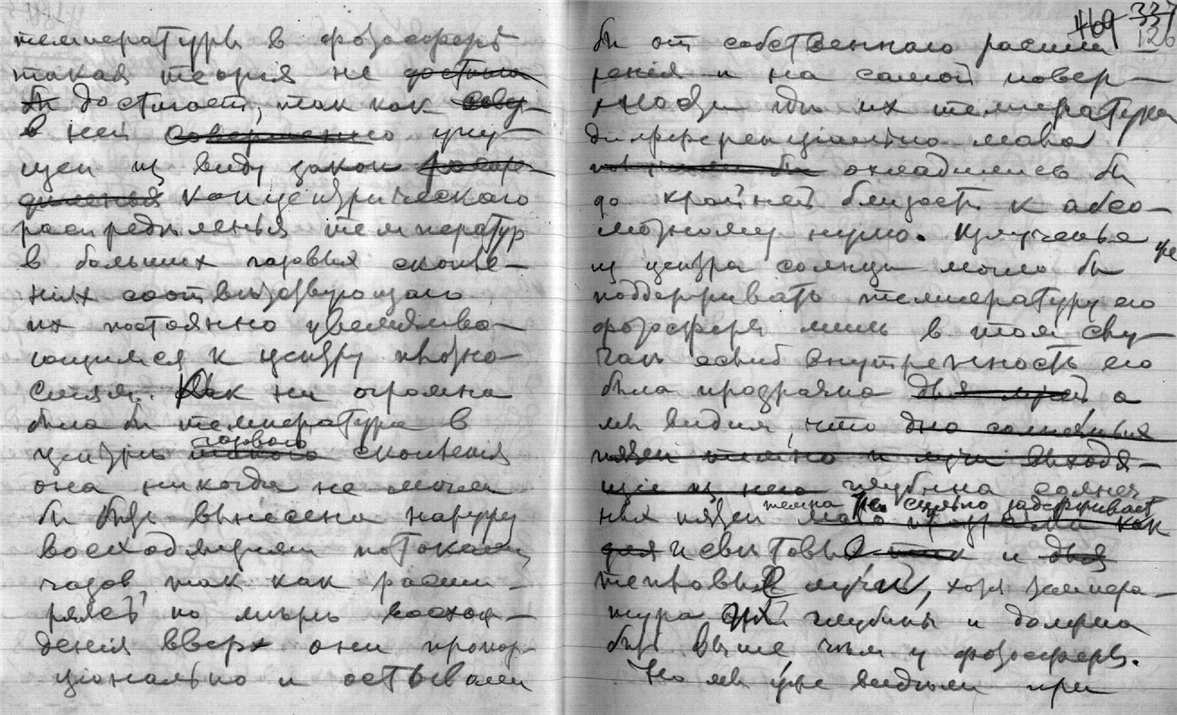 температуры в фотосферѣ
такая теорія не достига
бы достигает, так как совер-
в ней совершенно упу-
щен из виду закон распре-
дѣленья концентрическаго
распредѣленья температур
в больших газовых скопле-
ніях соотвѣтствующаго
их постоянно увеличиваю-
ющимся к центру плотно-
стям. Как ни огромна
была бы температура в
центрѣ газоваго скопленія
она никогда не могла
бы быть вынесена наружу
восходящими потоками
газов так как расши-
ряясь по мѣрѣ восхож-
денія вверх они пропор-
ціонально и остывали
469 337 126
бы от собственнаго расши-
ренія и на самой повер-
хности гдѣ их температура
дифференціально мала
охладились бы
до крайней близости к абсо-
лютному нулю. Излученье же
из центра солнца могло бы
поддерживать температуру его
фотосферы лишь в том слу-
чаѣ еслиб внутренность его
была прозрачна для лучей а
мы видим, что дно солнечных
пятен темно и лучи выходя-
щіе из него глубина солнеч
ных пятен темна сильно задерживает
мало прозрачна как
для и свѣтовые так и для
тепловые лучи, хотя темпера-
тура их глубины и должна
быть выше чѣм у фотосферы.
Но мы уже видѣли при